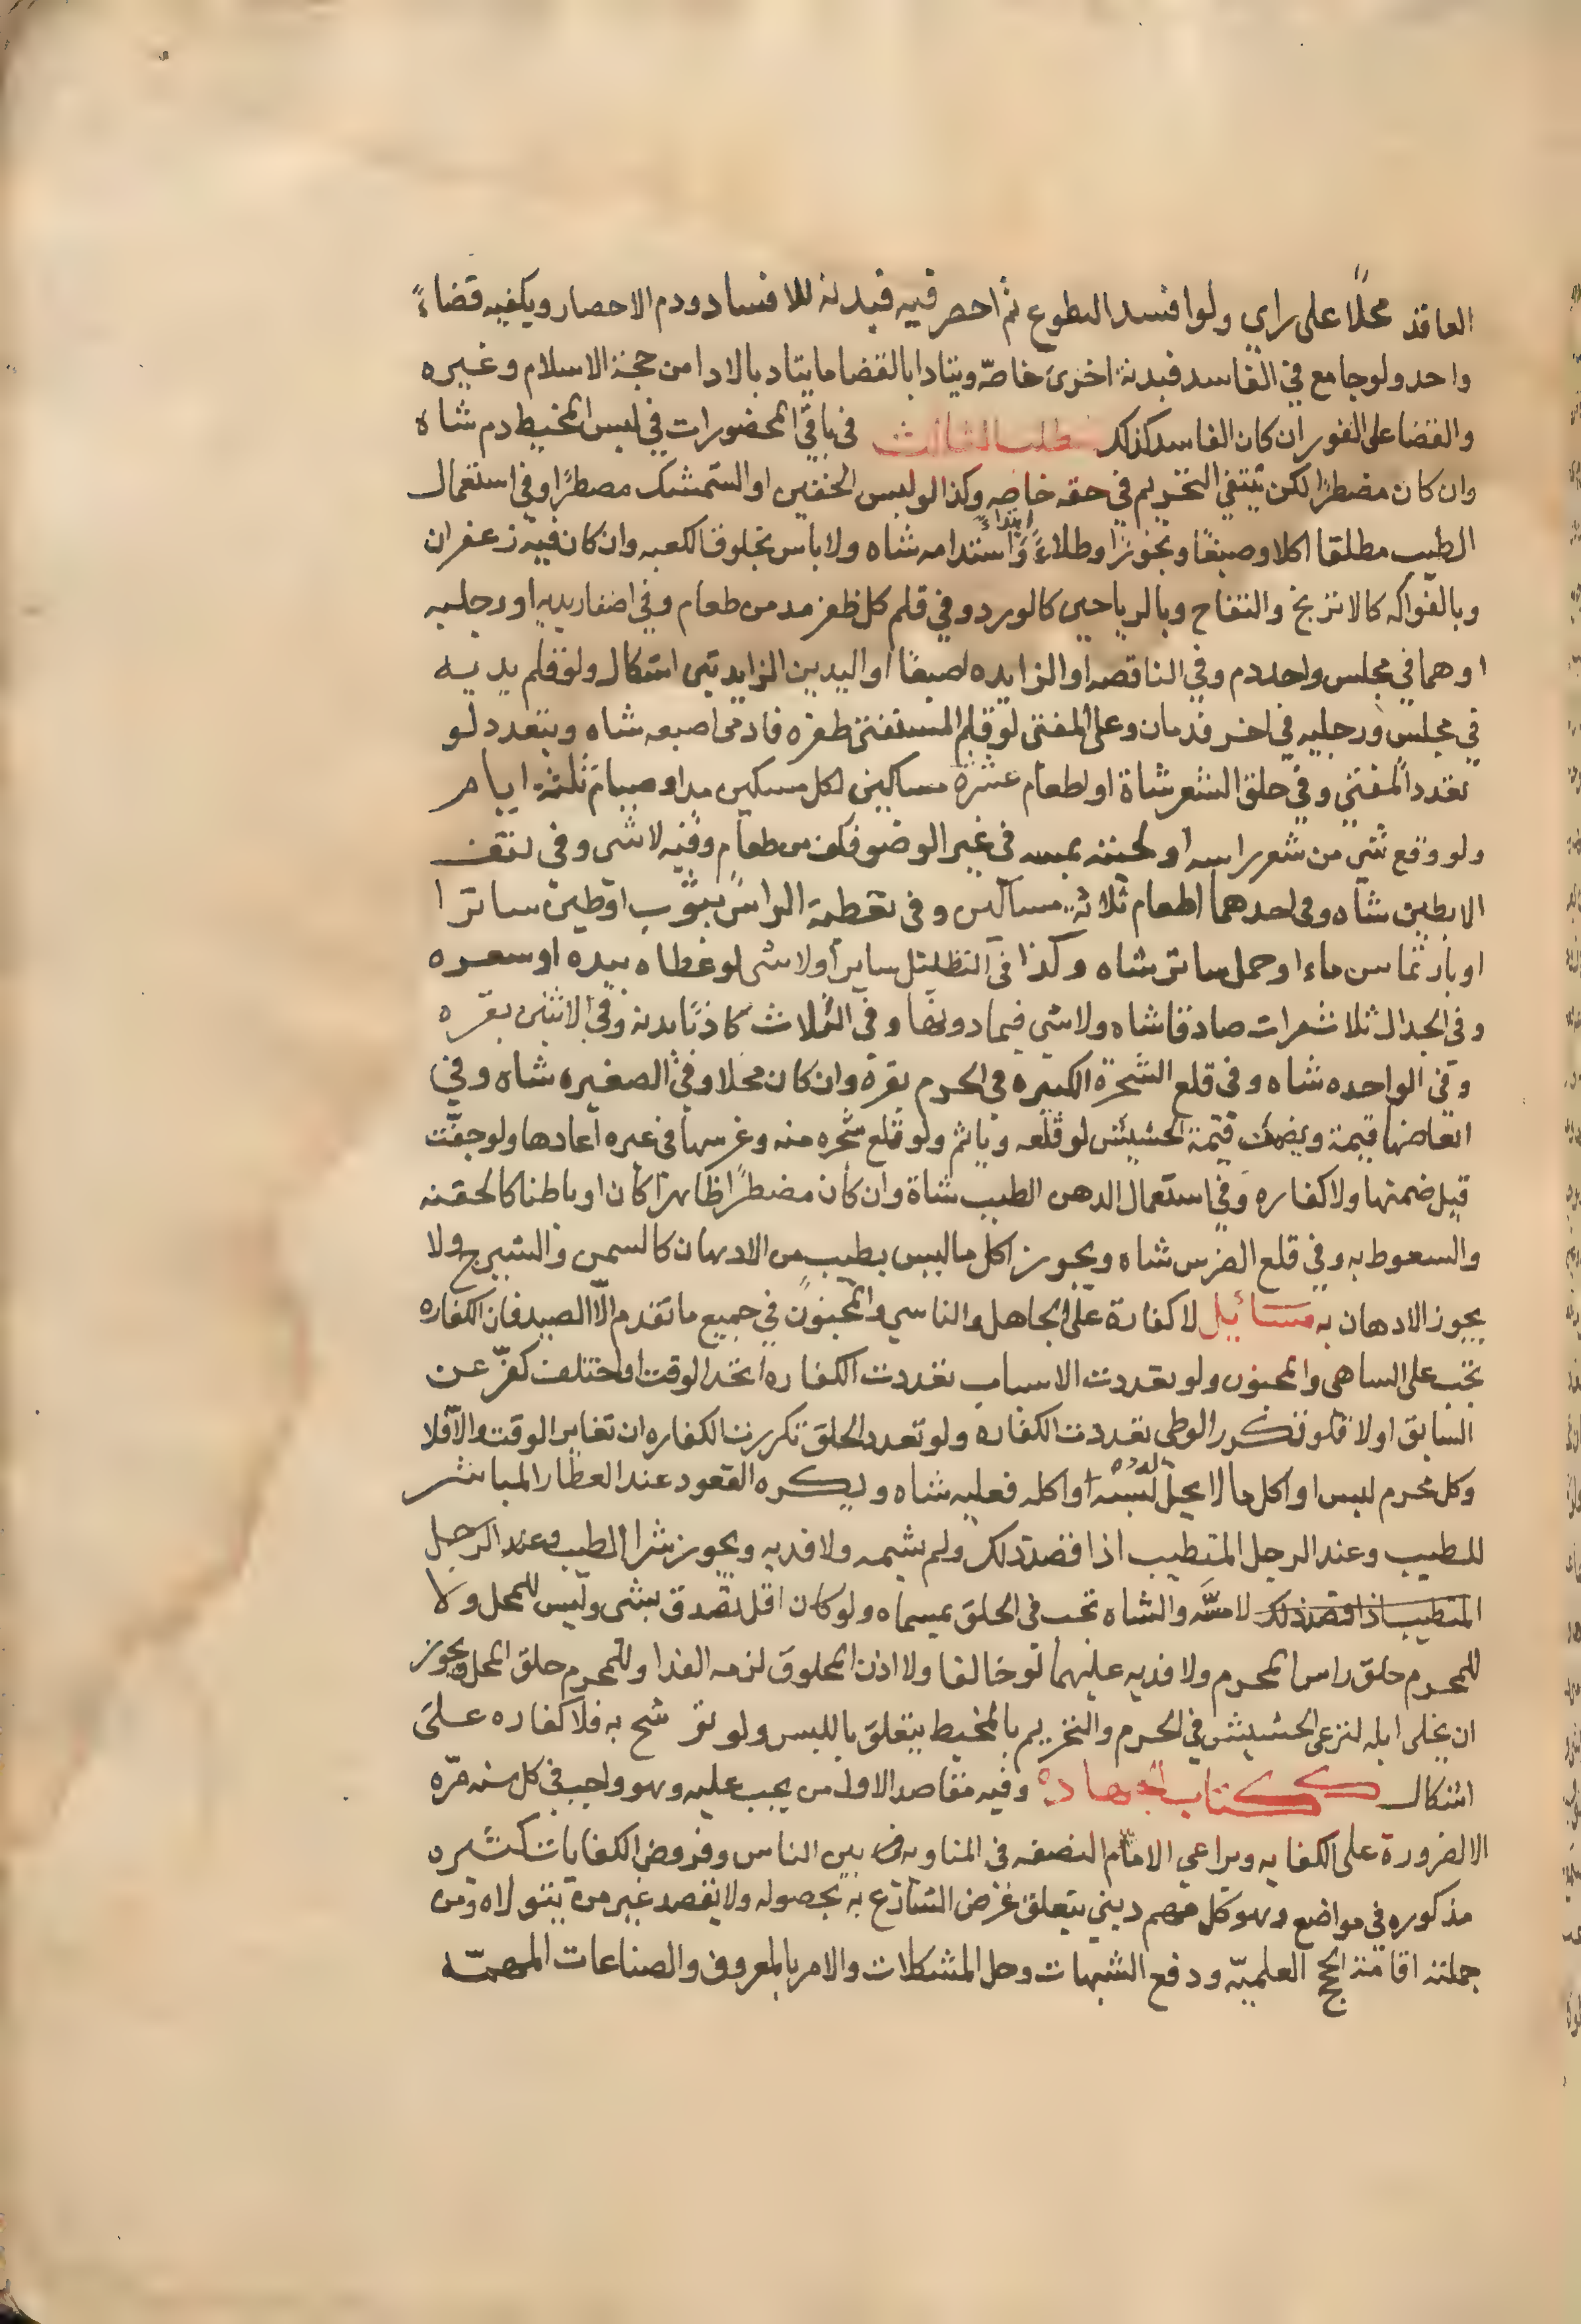 العاقد محلّا على راي ولو افسد التطوع ثم احصر فيه فبدنة للافساد ودم الاحصار ويكفيه قضاءً
واحد ولو جامع في الفاسد فبدنة اخرى خاصّه ويتادا بالقضا ما يتاد بالادا من حجة الاسلام وغيره
والقضا على الفور ان كان الفاسد كذلك المطلب الثالث في باقي المحضورات في لبس المخيط دم شاه
وان كان مضطرًا لكن ينتفي التحريم في حقه خاصه وكذا لو لبس الخفين او الشمشك مضطرًا وفي استعمال
الطيب مطلقا اكلا وصبغًا وبخورًا وطلاءً ابتداءً واستدامه شاه ولا باس بخلوق الكعبه وان كان فيه زعفران
وبالفواكه كالاترنج والتفاح وبالرياحين كالورد وفي قلم كل ظفر مد من طعام وفي اضفار يديه او رجليه
او هما في مجلس واحد دم وفي الناقصه او الزايده اصبعًا او اليدين الزايدتين اشكال ولو قلم يديه
في مجلس ورجليه في اخر فدمان وعلى المفتي لو قلم المستفتي ظفره فادمى اصبعه شاه ويتعدد لو
تعدد المفتي وفي حلق الشعر شاة او اطعام عشرة مساكين لكل مسكين مد او صيام ثلثة ايام
ولو وقع شي من شعر راسه او لحيته بمسه في غير الوضو فكف من طعام وفيه لا شي وفي نتف
الابطين شاه وفي احدهما اطعام ثلاثة مساكين وفي تغطية الراس بثوب او طين ساترا
او بارتماس ماء او حمل ساتر شاه وكذا في التظليل سايرا ولا شي لو غطاه بيده او شعره
وفي الجدال ثلاث مرات صادقا شاه ولا شي فيما دونها وفي الثلاث كاذبًا بدنة وفي الاثنين بقره
وفي الواحده شاه وفي قلع الشجرة الكبيره في الحرم بقرة وان كان محلا وفي الصغيره شاه وفي
ابعاضها قيمة ويضمن قيمة الحشيش لو قلعه وياثم ولو قلع شجره منه وغرسها في غيره اعادها ولو جفّت
قيل ضمنها ولا كفاره وفي استعمال الدهن الطيب شاة وان كان مضطرًا ظاهرا كان او باطنا كالحقنه
والسعوط به وفي قلع الضرس شاه ويجوز اكل ما ليس بطيب من الادهان كالسمن والشيرج ولا
يجوز الادهان به مسائيل لا كفارة على الجاهل والناسي والمجنون في جميع ما تقدم الّا الصيد فان الكفاره
تجب على الساهي والمجنون ولو تعددت الاسباب تعددت الكفاره اتحد الوقت او اختلف كفّر عن
السابق او لا فلو تكرر الوطي تعددت الكفاره ولو تعدد الحلق تكررت الكفاره ان تغاير الوقت والّا فلا
وكل محرم لبس او اكل ما لا يحل لبسه او اكله فعليه شاه ويكره القعود عند العطار المباشر
للطيب وعند الرجل المتطيب اذا قصد ذلك ولم يشمه ولا فديه ويجوز شرا الطيب وعند الرجل
المتطيب اذا قصد ذلك لا مسّه والشاه تجب في الحلق بمسماه ولو كان اقل تصدق بشي وليس للمحل ولا
للمحرم حلق راس المحرم ولا فديه عليهما لو خالفا ولا اذن المحلوق لزمه الفدا وللمحرم حلق المحل ويجوز
ان يخلى ابله لترعى الحشيش في الحرم والتحريم بالمخيط يتعلق باللبس ولو توشح به فلا كفاره على
اشكال كتاب الجهاد وفيه مقاصد الاول من يجب عليه وهو واجب في كل سنه مرّه
الا لضرورة على الكفايه ويراعي الامام النصفه في المناوبه بين الناس وفروض الكفايات كثيره
مذكوره في مواضع وهو كل مهم ديني يتعلق غرض الشارع به بحصوله ولا يقصد عين من يتولاه ومن
جملته اقامة الحجج العلميّه ودفع الشبهات وحل المشكلات والامر بالمعروف والصناعات المهمّه